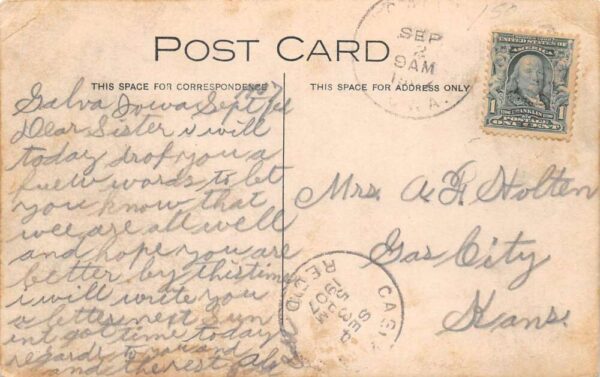 POST CARD
THIS SPACE FOR CORRESPONDENCE
THIS SPACE FOR ADDRESS ONLY
SEP
2
9AM
UNITED STATES OF AMERICA
1
1
POSTAGE
ONE CENT
Galva Iowa Sept 1st
1907
Dear Sister i will
today drop you a
few words to let
you know that
wee are all well
and hope you are
better by this time
i will write you
a letter next Sun
int got time today
regards to you and
and the rest
Mrs. A. F. Holten
Gas City
Kans.
REC'D
GAS
SEP
3
1907